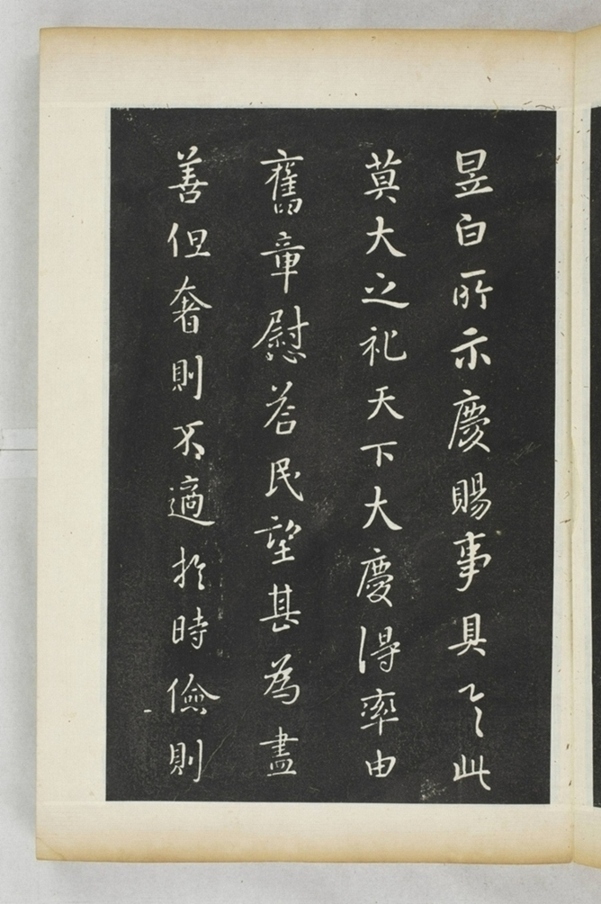 昱白所示慶賜事具此
莫大之祀天下大慶得率由
舊章慰荅民望甚為盡
善但奢則不適扵時儉則